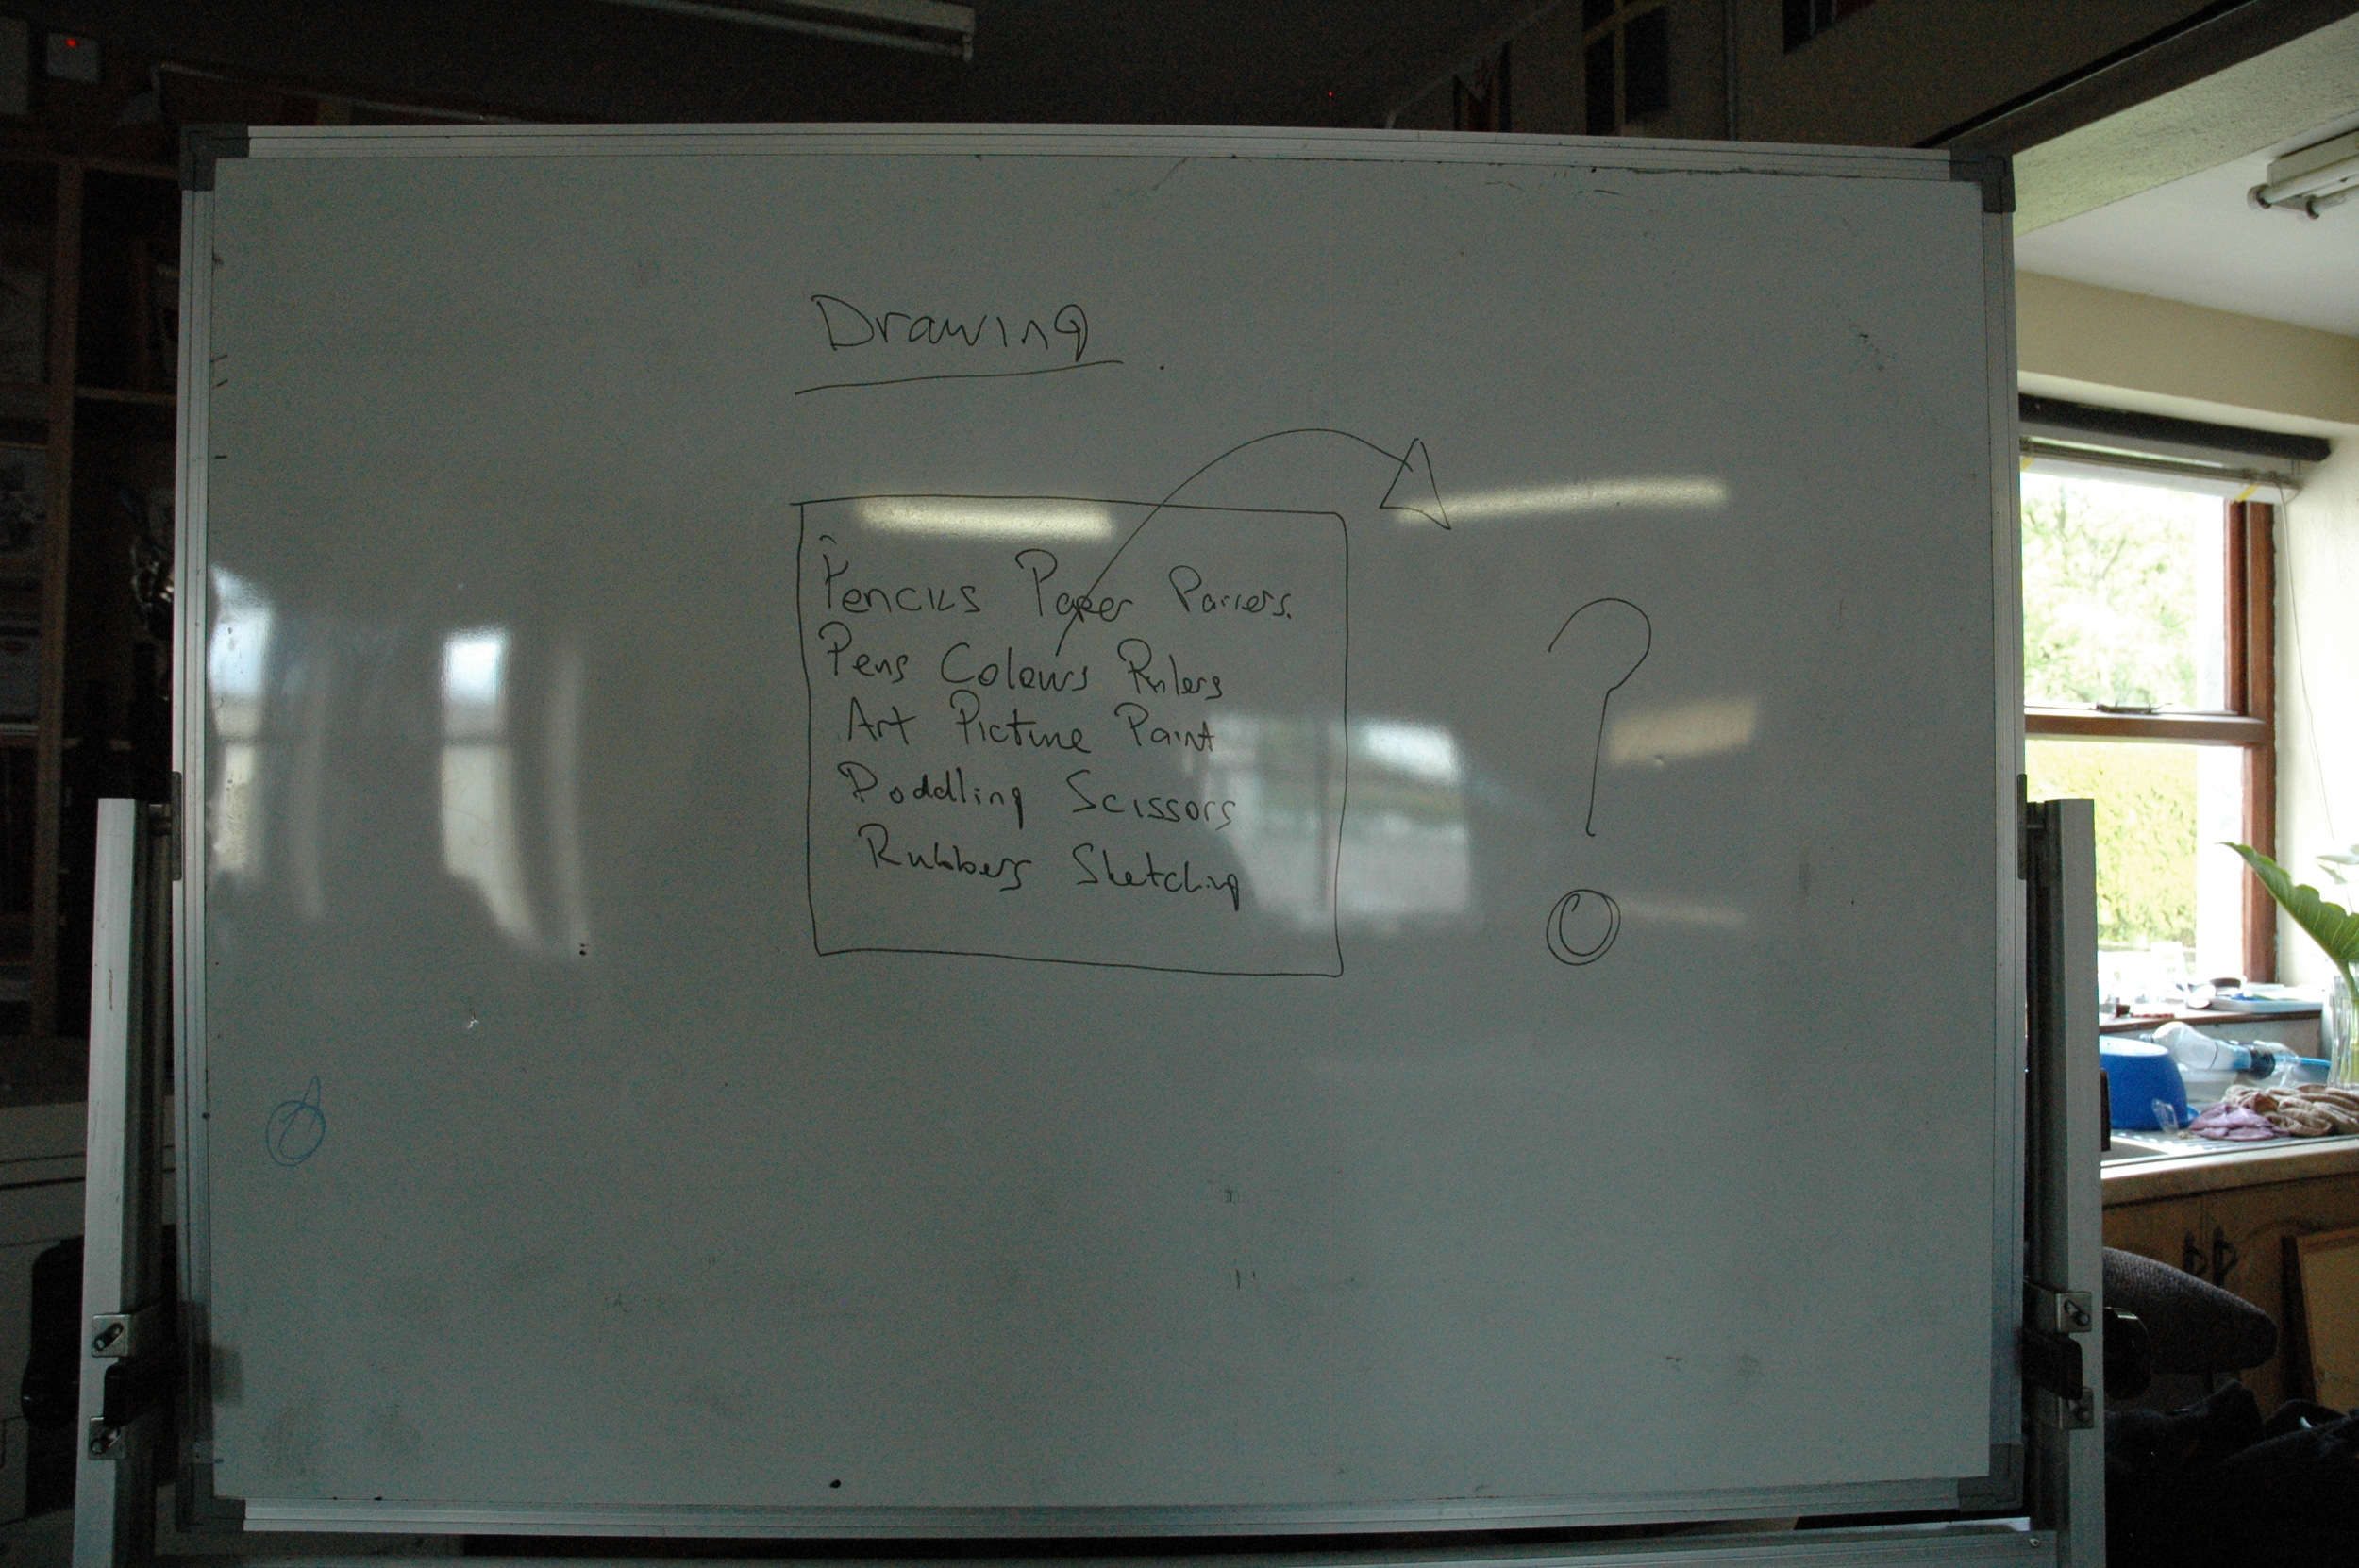 Drawing
Pencils Paper Parers.
Pens Colours Rulers
Art Picture Paint
Doddling Scissors
Rubbers Sketching
?